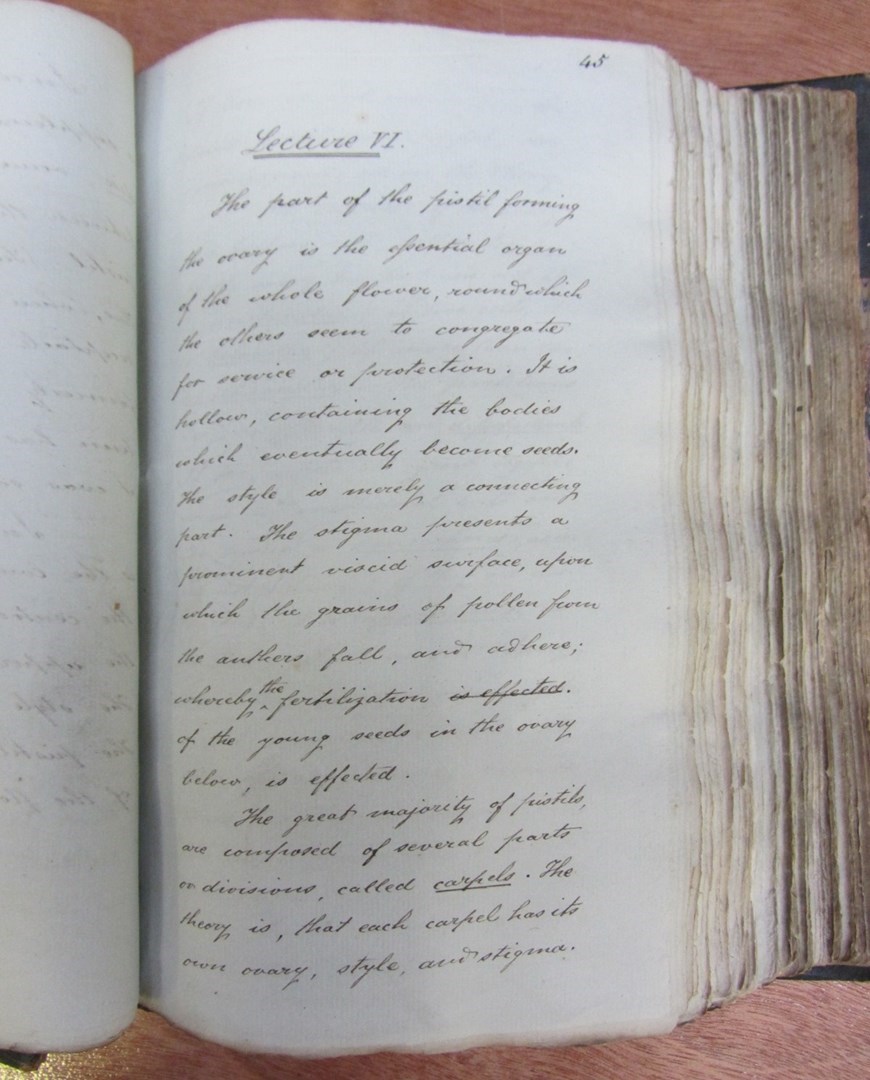 45
Lecture VI.
The part of the pistil forming
the ovary is the essential organ
of the whole flower, round which
the others seem to congregate
for service or protection. It is
hollow, containing the bodies
which eventually become seeds.
The style is merely a connecting
part. The stigma presents a
prominent viscid surface, upon
which the grains of pollen from
the anthers fall, and adhere;
whereby ^the fertilization is effected.
of the young seeds in the ovary
below, is effected.
The great majority of pistils,
are composed of several parts
or divisions, called carpels. The
theory is, that each carpel has its
own ovary, style, and stigma.